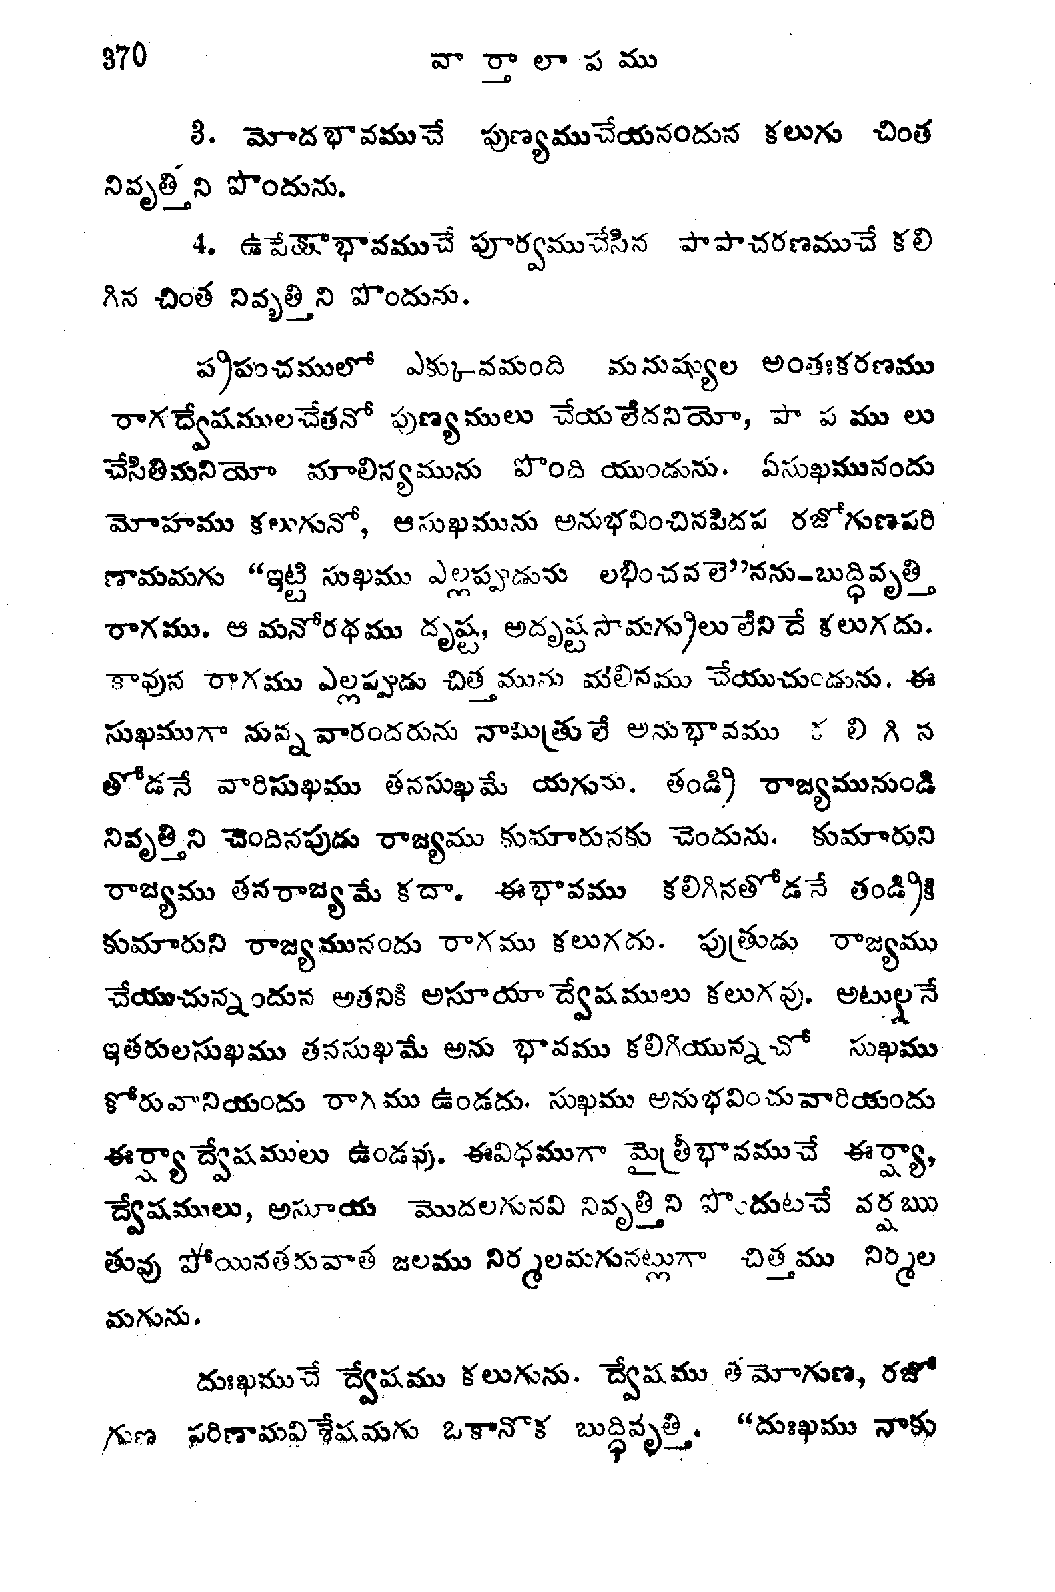 370 వార్తాలాపము
3. మోదభావముచే పుణ్యముచేయనందున కలుగు చింత
నివృత్తిని పొందును.
4. ఉపేక్షాభావముచే పూర్వముచేసిన పాపాచరణముచే కలి
గిన చింత నివృత్తిని పొందును.
ప్రపంచములో ఎక్కువమంది మనుష్యుల అంతఃకరణము
రాగద్వేషములచేతనో పుణ్యములు చేయలేదనియో, పా ప ము లు
చేసితిమనియో మాలిన్యమును పొంది యుండును. ఏసుఖమునందు
మోహము కలుగునో, ఆసుఖమును అనుభవించినపిదప రజోగుణపరి
ణామమగు “ఇట్టి సుఖము ఎల్లప్పుడును లభించవలె”నను-బుద్ధివృత్తి
రాగము. ఆ మనోరథము దృష్ట, అదృష్టసామగ్రులులేనిదే కలుగదు.
కావున రాగము ఎల్లప్పుడు చిత్తమును మలినము చేయుచుండును. ఈ
సుఖముగా నున్నవారందరును నామిత్రులే అనుభావము క లి గి న
తోడనే వారిసుఖము తనసుఖమే యగును. తండ్రి రాజ్యమునుండి
నివృత్తిని చెందినపుడు రాజ్యము కుమారునకు చెందును. కుమారుని
రాజ్యము తనరాజ్యమే కదా. ఈభావము కలిగినతోడనే తండ్రికి
కుమారుని రాజ్యమునందు రాగము కలుగదు. పుత్రుడు రాజ్యము
చేయుచున్నందున అతనికి అసూయాద్వేషములు కలుగవు. అటుల్నే
ఇతరులసుఖము తనసుఖమే అను భావము కలిగియున్నచో సుఖము
కోరువానియందు రాగము ఉండదు. సుఖము అనుభవించువారియందు
ఈర్ష్యాద్వేషములు ఉండవు. ఈవిధముగా మైత్రీభావముచే ఈర్ష్యా,
ద్వేషములు, అసూయ మొదలగునవి నివృత్తిని పొందుటచే వర్షఋ
తువు పోయినతరువాత జలము నిర్మలమగునట్లుగా చిత్తము నిర్మల
మగును.
దుఃఖముచే ద్వేషము కలుగును. ద్వేషము తమోగుణ, రజో
గుణ పరిణామవిశేషమగు ఒకానొక బుద్ధివృత్తి. “దుఃఖము నాకు